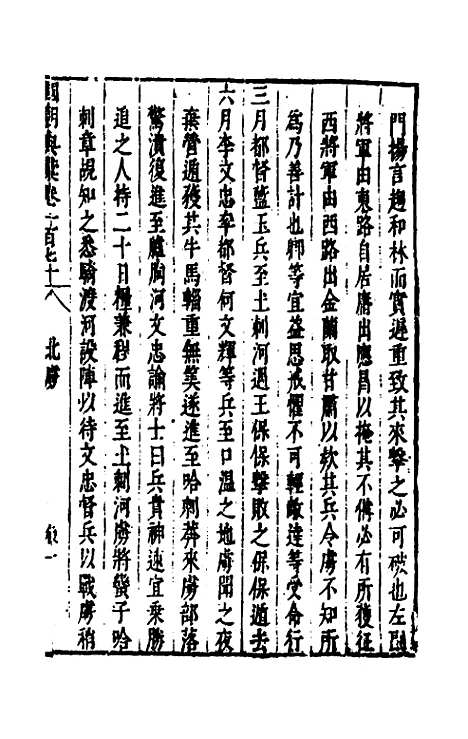 門揚言趨和林而實遲重致其來擊之必可破也左副
將軍由東路自居庸出應昌以掩其不備必有所獲征
西將軍由西路出金蘭取甘肅以欸其兵令虜不知所
為乃善計也卿等宜益思戒懼不可輕敵達等受命行
三月都督藍玉兵至土剌河遇王保保擊敗之保保遁去
六月李文忠率都督何文輝等兵至口溫之地虜聞之夜
棄營遁獲其牛馬輜重無筭遂進至哈剌莽來虜部落
驚潰復進至臚朐河文忠諭將士曰兵貴神速宜乗勝
追之人持二十日糧兼程而進至土剌河虜將蠻子哈
剌章覘知之悉騎渡河設陣以待文忠督兵以戰虜稍
國朝典彙卷一百七十 北虜